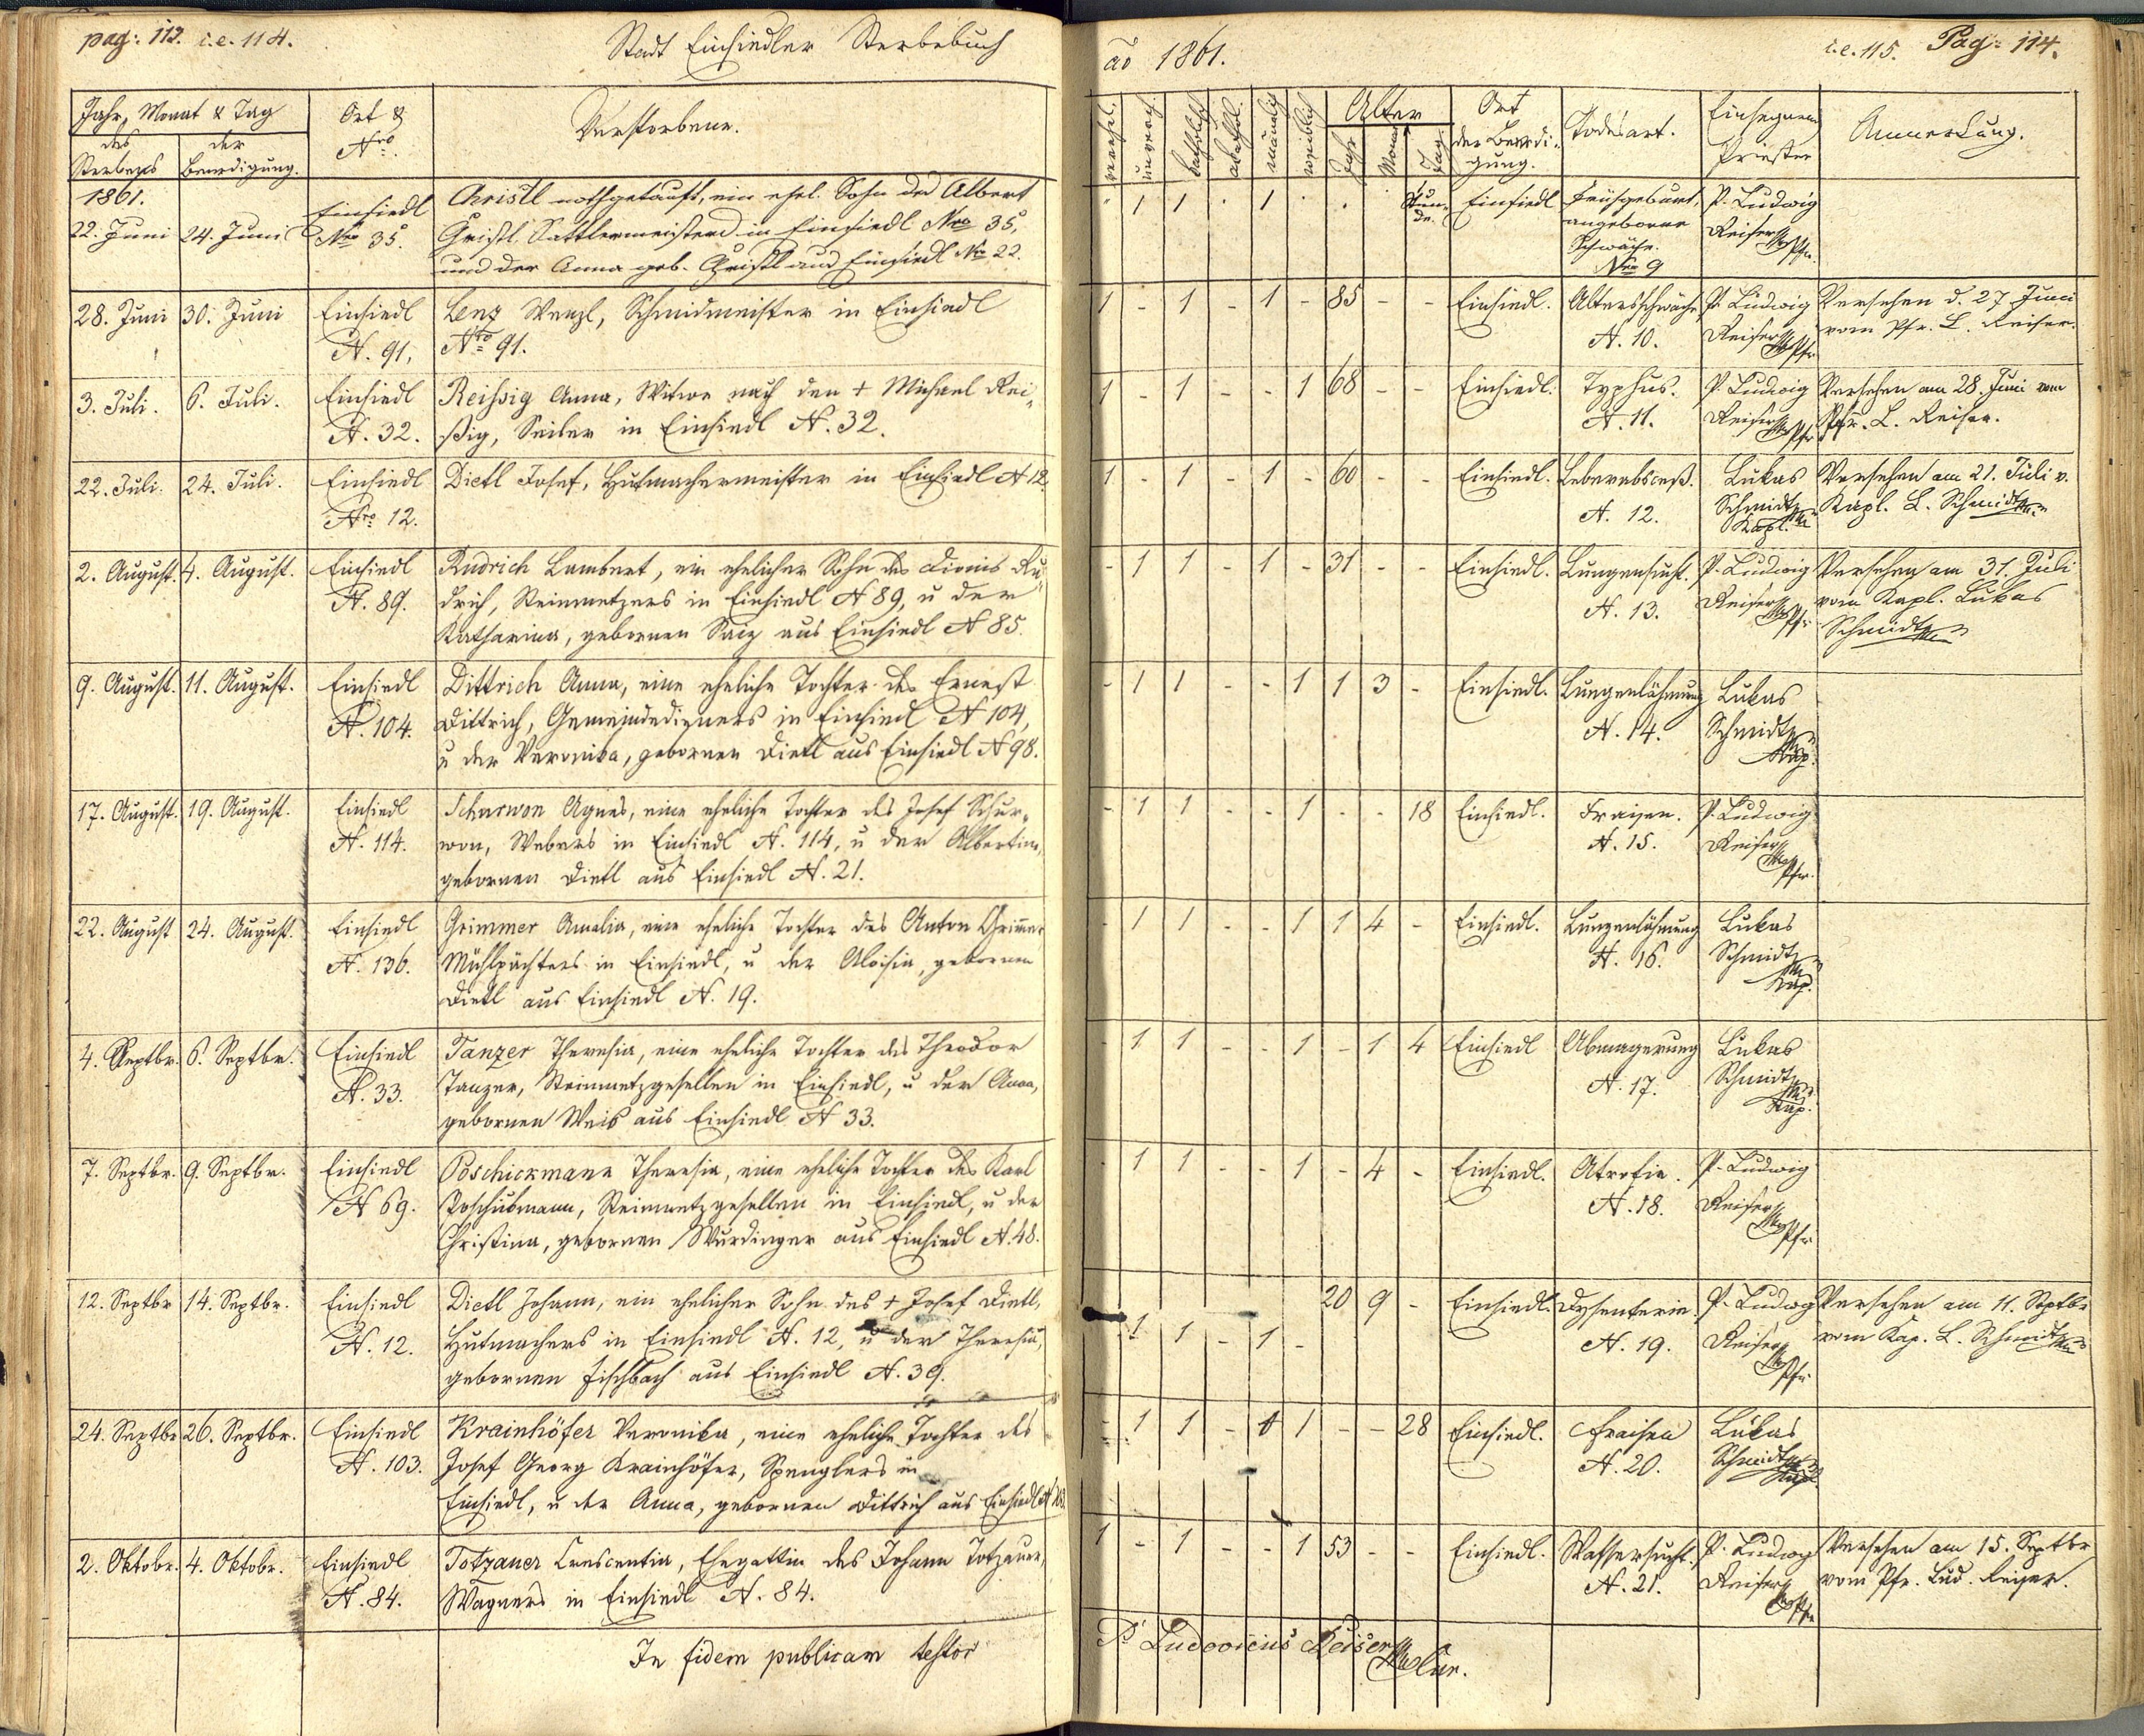 pag: 113. i.e. 114.
Stadt Einsiedler Sterbebuch
Jahr, Monat & Tag
des Sterbens
der Beerdigung.
Ort & Nro.
Verstorbene.
1861.
22. Juni
24. Juni
Einsiedl
Nro 35.
Christl nothgetauft, ein ehel. Sohn des Albert
Christl, Sattlermeisters in Einsiedl Nro 35,
und der Anna geb. Christl aus Einsiedl Nro 22.
28. Juni
30. Juni
Einsiedl
N. 91.
Lenz Wenzl, Schmidmeister in Einsiedl
Nro 91.
3. Juli.
6. Juli.
Einsiedl
N. 32.
Reißig Anna, Witwe nach den + Michael Rei-
ßig, Seiler in Einsiedl N. 32.
22. Juli.
24. Juli.
Einsiedl
Nro 12.
Dietl Josef, Hutmachermeister in Einsiedl N 12.
2. August.
4. August.
Einsiedl
N. 89.
Rudrich Lambert, ein ehelicher Sohn des Dionis Ru-
drich, Steinmetzers in Einsiedl N 89, u der
Katharina, gebornen Saiz aus Einsiedl N 85.
9. August.
11. August.
Einsiedl
N. 104.
Dittrich Anna, eine eheliche Tochter des Ernest
Dittrich, Gemeindedieners in Einsiedl N 104,
u der Veronika, gebornen Dietl aus Einsiedl N 98.
17. August.
19. August.
Einsiedl
N. 114.
Schurwon Agnes, eine eheliche Tochter des Josef Schur-
won, Webers in Einsiedl N. 114, u der Albertine,
gebornen Dietl aus Einsiedl N. 21.
22. August
24. August.
Einsiedl
N. 136.
Grimmer Amalia, eine eheliche Tochter des Anton Grimmer
Mühlpächters in Einsiedl, u der Aloisia, gebornen
Dietl aus Einsiedl N. 19.
4. Septbr.
6. Septbr.
Einsiedl
N. 33.
Tanzer Theresia, eine eheliche Tochter des Theodor
Tanzer, Steinmetzgesellen in Einsiedl, u der Anna,
gebornen Weis aus Einsiedl N 33.
7. Septbr.
9. Septbr.
Einsiedl
N 69.
Poschickmann Theresia, eine eheliche Tochter des Karl
Poschikmann, Steinmetzgesellen in Einsiedl, u der
Christina, gebornen Wurdinger aus Einsiedl N. 48.
12. Septbr
14. Septbr.
Einsiedl
N. 12.
Dietl Johann, ein ehelicher Sohn des + Josef Dietl,
Hutmachers in Einsiedl N. 12, u der Theresia,
gebornen Fischbach aus Einsiedl N. 39.
24. Septbr
26. Septbr.
Einsiedl
N. 103.
Krainhöfer Veronika, eine eheliche Tochter des
Josef Georg Krainhöfer, Spenglers in
Einsiedl, u der Anna, gebornen Dittrich aus Einsiedl N 103.
2. Oktobr.
4. Oktobr.
Einsiedl
N. 84.
Totzauer Crescentia, Ehegattin des Johann Totzauer,
Wagners in Einsiedl N. 84.
In fidem publicam testor
ao 1861.
i.e. 115. Pag: 114.
versehl.
unversh.
katholisch
akathol.
männlich
weiblich
Alter
Jahr
Mon.
Tag
Ort der Beerdi-
gung.
Todesart.
Einsegnen
Priester
Anmerkung.
" 1 1 . 1 . . Stun-
de.
Einsiedl
Frühgeburt,
angeborne
Schwäche.
Nro 9
P. Ludwig
Reiser Pfr.
1 - 1 - 1 - 85 - -
Einsiedl.
Altersschwäche
N. 10.
P. Ludwig
Reiser Pfr
Versehen d. 27 Juni
vom Pfr. L. Reiser.
1 - 1 - - 1 68 - -
Einsiedl.
Typhus.
N. 11.
P. Ludwig
Reiser Pfr
Versehen am 28. Juni vom
Pfr. L. Reiser.
1 - 1 - 1 - 60 - -
Einsiedl.
Leberabsceß.
N. 12.
Lukas
Schmidt
Kapl.
Versehen am 21. Juli v.
Kapl. L. Schmidt
- 1 1 - 1 - 31 - -
Einsiedl.
Lungensucht.
N. 13.
P. Ludwig
Reiser Pfr
Versehen am 31 Juli
vom Kapl. Lukas
Schmidt
- 1 1 - - 1 1 3 -
Einsiedl.
Lungenlähmung
N. 14.
Lukas
Schmidt
Kap.
- 1 1 - - 1 - - 18
Einsiedl.
Fraisen.
N. 15.
P. Ludwig
Reiser
Pfr.
- 1 1 - - 1 1 4 -
Einsiedl.
Lungenlähmung
N. 16.
Lukas
Schmidt
Kap.
- 1 1 - - 1 - 1 4
Einsiedl
Abmagerung
N. 17.
Lukas
Schmidt
Kap.
- 1 1 - - 1 - 4 -
Einsiedl.
Atrofie.
N. 18.
P. Ludwig
Reiser
Pfr
- 1 1 - 1 - 20 9 -
Einsiedl.
Dysenterie.
N. 19.
P. Ludwig
Reiser
Pfr.
Versehen am 11. Septbr
vom Kap. L. Schmidt
- 1 1 - 1 1 - - 28
Einsiedl.
Fraisen
N. 20.
Lukas
Schmidt
Kapl.
1 - 1 - - 1 53 - -
Einsiedl.
Wassersucht.
N. 21.
P. Ludwig
Reiser
Pfr
Versehen am 15. Septbr
vom Pfr. Lud. Reiser.
P. Ludovicus Reiser Cur.